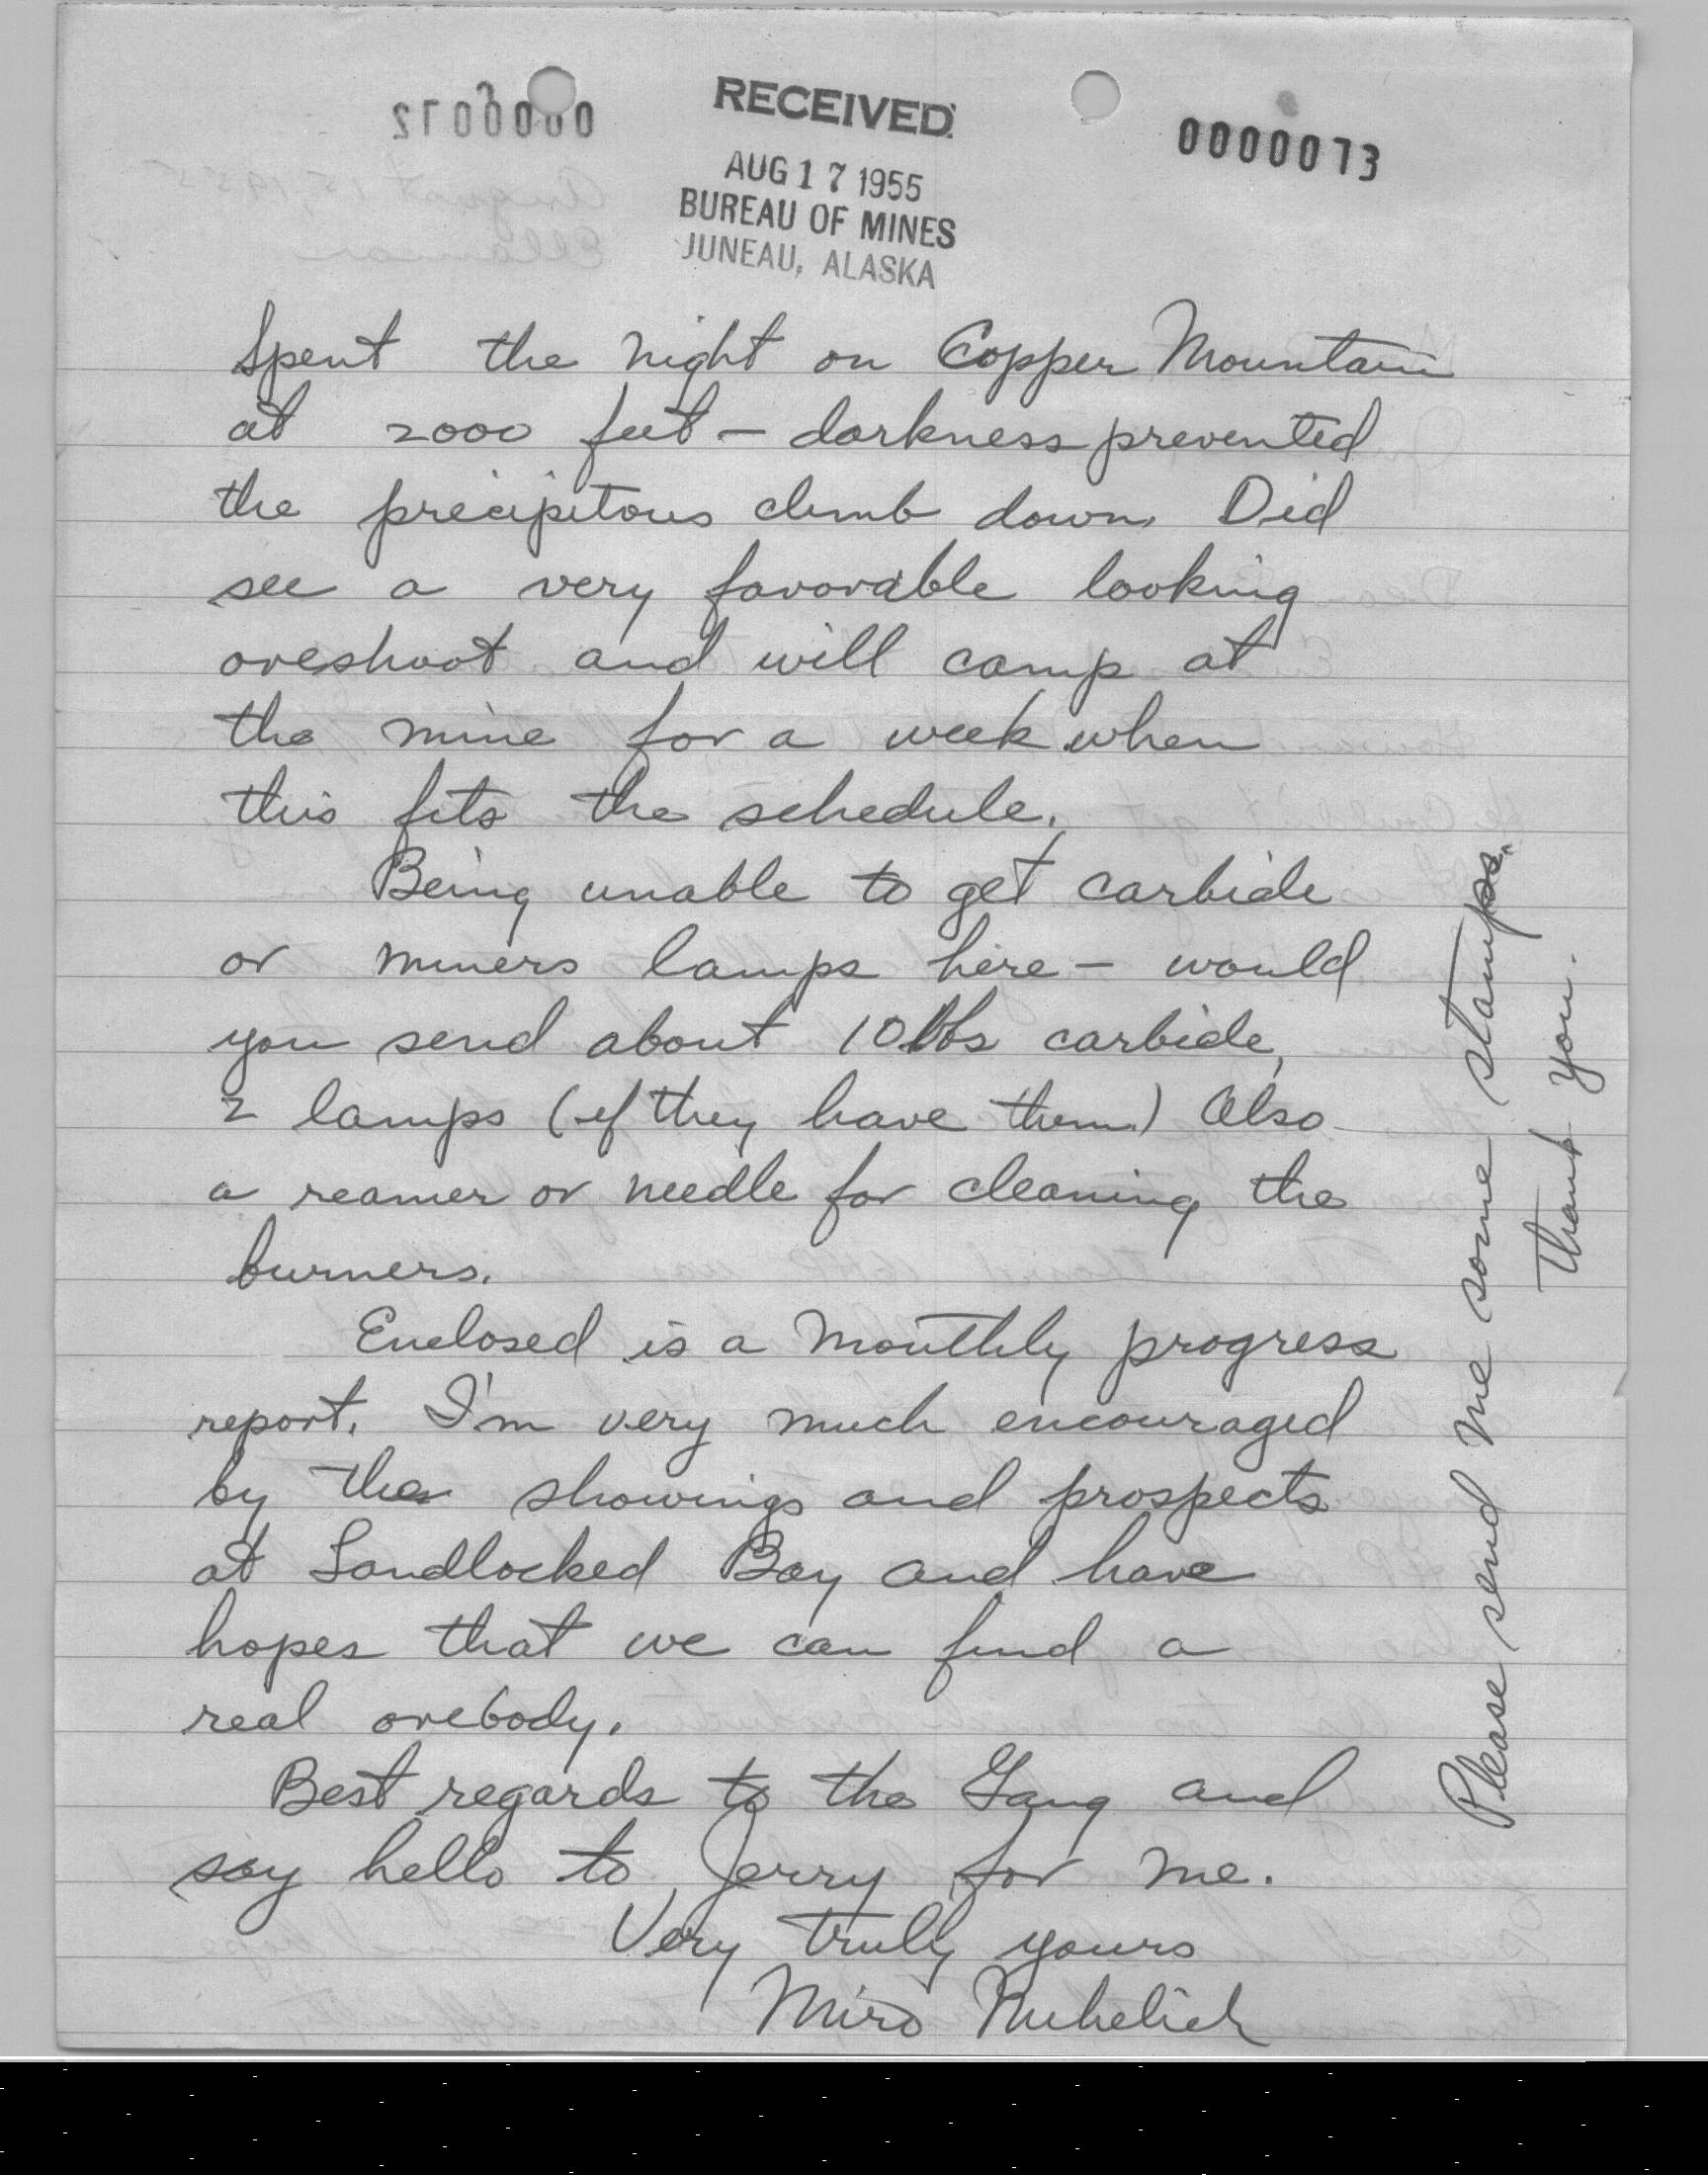 RECEIVED
AUG 17 1955
BUREAU OF MINES
JUNEAU, ALASKA
0000073
Spent the night on Copper Mountain
at 2000 feet – darkness prevented
the precipitous climb down. Did
see a very favorable looking
oreshoot and will camp at
the mine for a week when
this fits the schedule.
Being unable to get carbide
or miners lamps here – would
you send about 10 lbs carbide,
2 lamps (if they have them) Also
a reamer or needle for cleaning the
burners.
Enclosed is a monthly progress
report. I'm very much encouraged
by the showings and prospects
at Landlocked Bay and have
hopes that we can find a
real orebody.
Best regards to the Gang and
say hello to Jerry for me.
Very truly yours
Miro
Please send me some stamps.
Thank you.